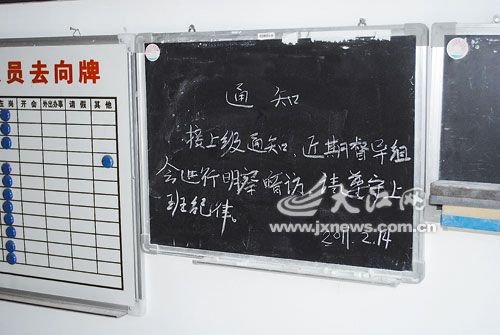 员去向牌
在岗 开会 外出办事 请假 其他
通知
接上级通知、近期督导组
会进行明察暗访,请遵守上
班纪律。
2011.2.14
大江网
www.jxnews.com.cn